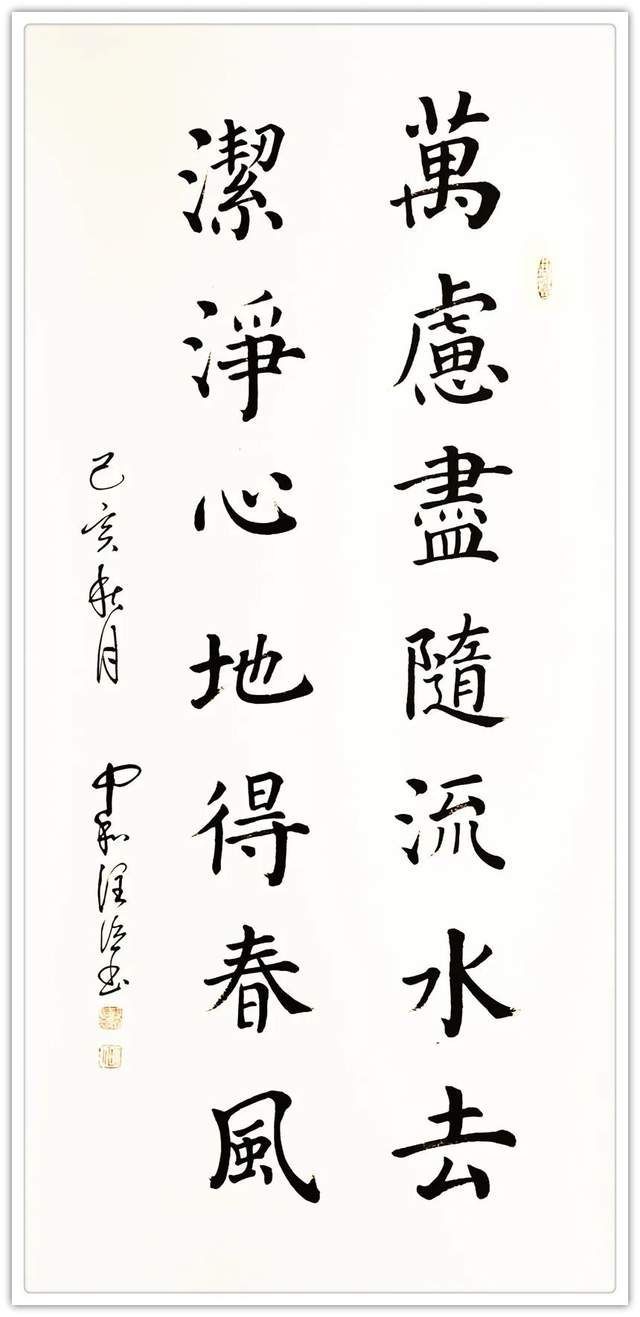 萬慮盡隨流水去
潔淨心地得春風
己亥秋月 中和 書